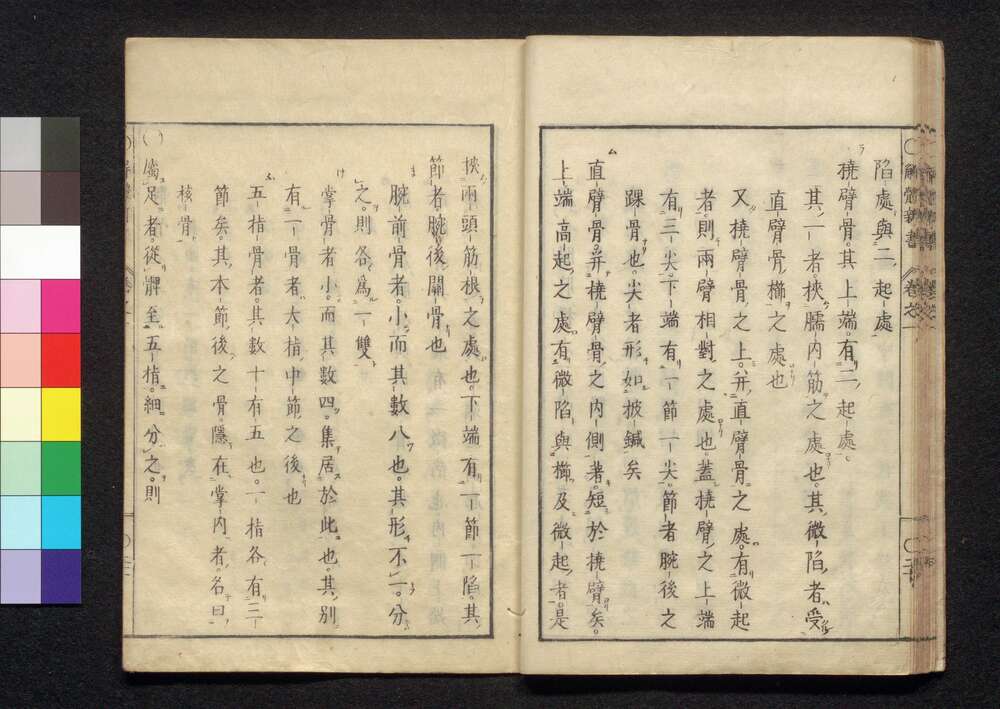 解體新書 卷之一
陷處與二起處
撓臂骨其上端有二起處。
其一者挾臑内筋之處也其微陷者受
直臂骨櫛之處也
又撓臂骨之上并直臂骨之處有微起
者則兩臂相對之處也蓋撓臂之上端
有三尖下端有一節一尖節者腕後之
踝骨也尖者形如披鍼矣
直臂骨并撓臂骨之内側著短於撓臂矣
上端高起之處有微陷與櫛及微起者是
挾兩頭筋根之處也下端有一節一陷其
節者腕後關骨也
腕前骨者小而其數八也其形不一分
之則各爲一雙
掌骨者小而其數四集居於此也其別
有一骨者大指中節之後也
五指骨者其數十有五也一指各有三
節矣其本節後之骨隱在掌内者名曰
核骨
屬足者從髀至五指細分之則